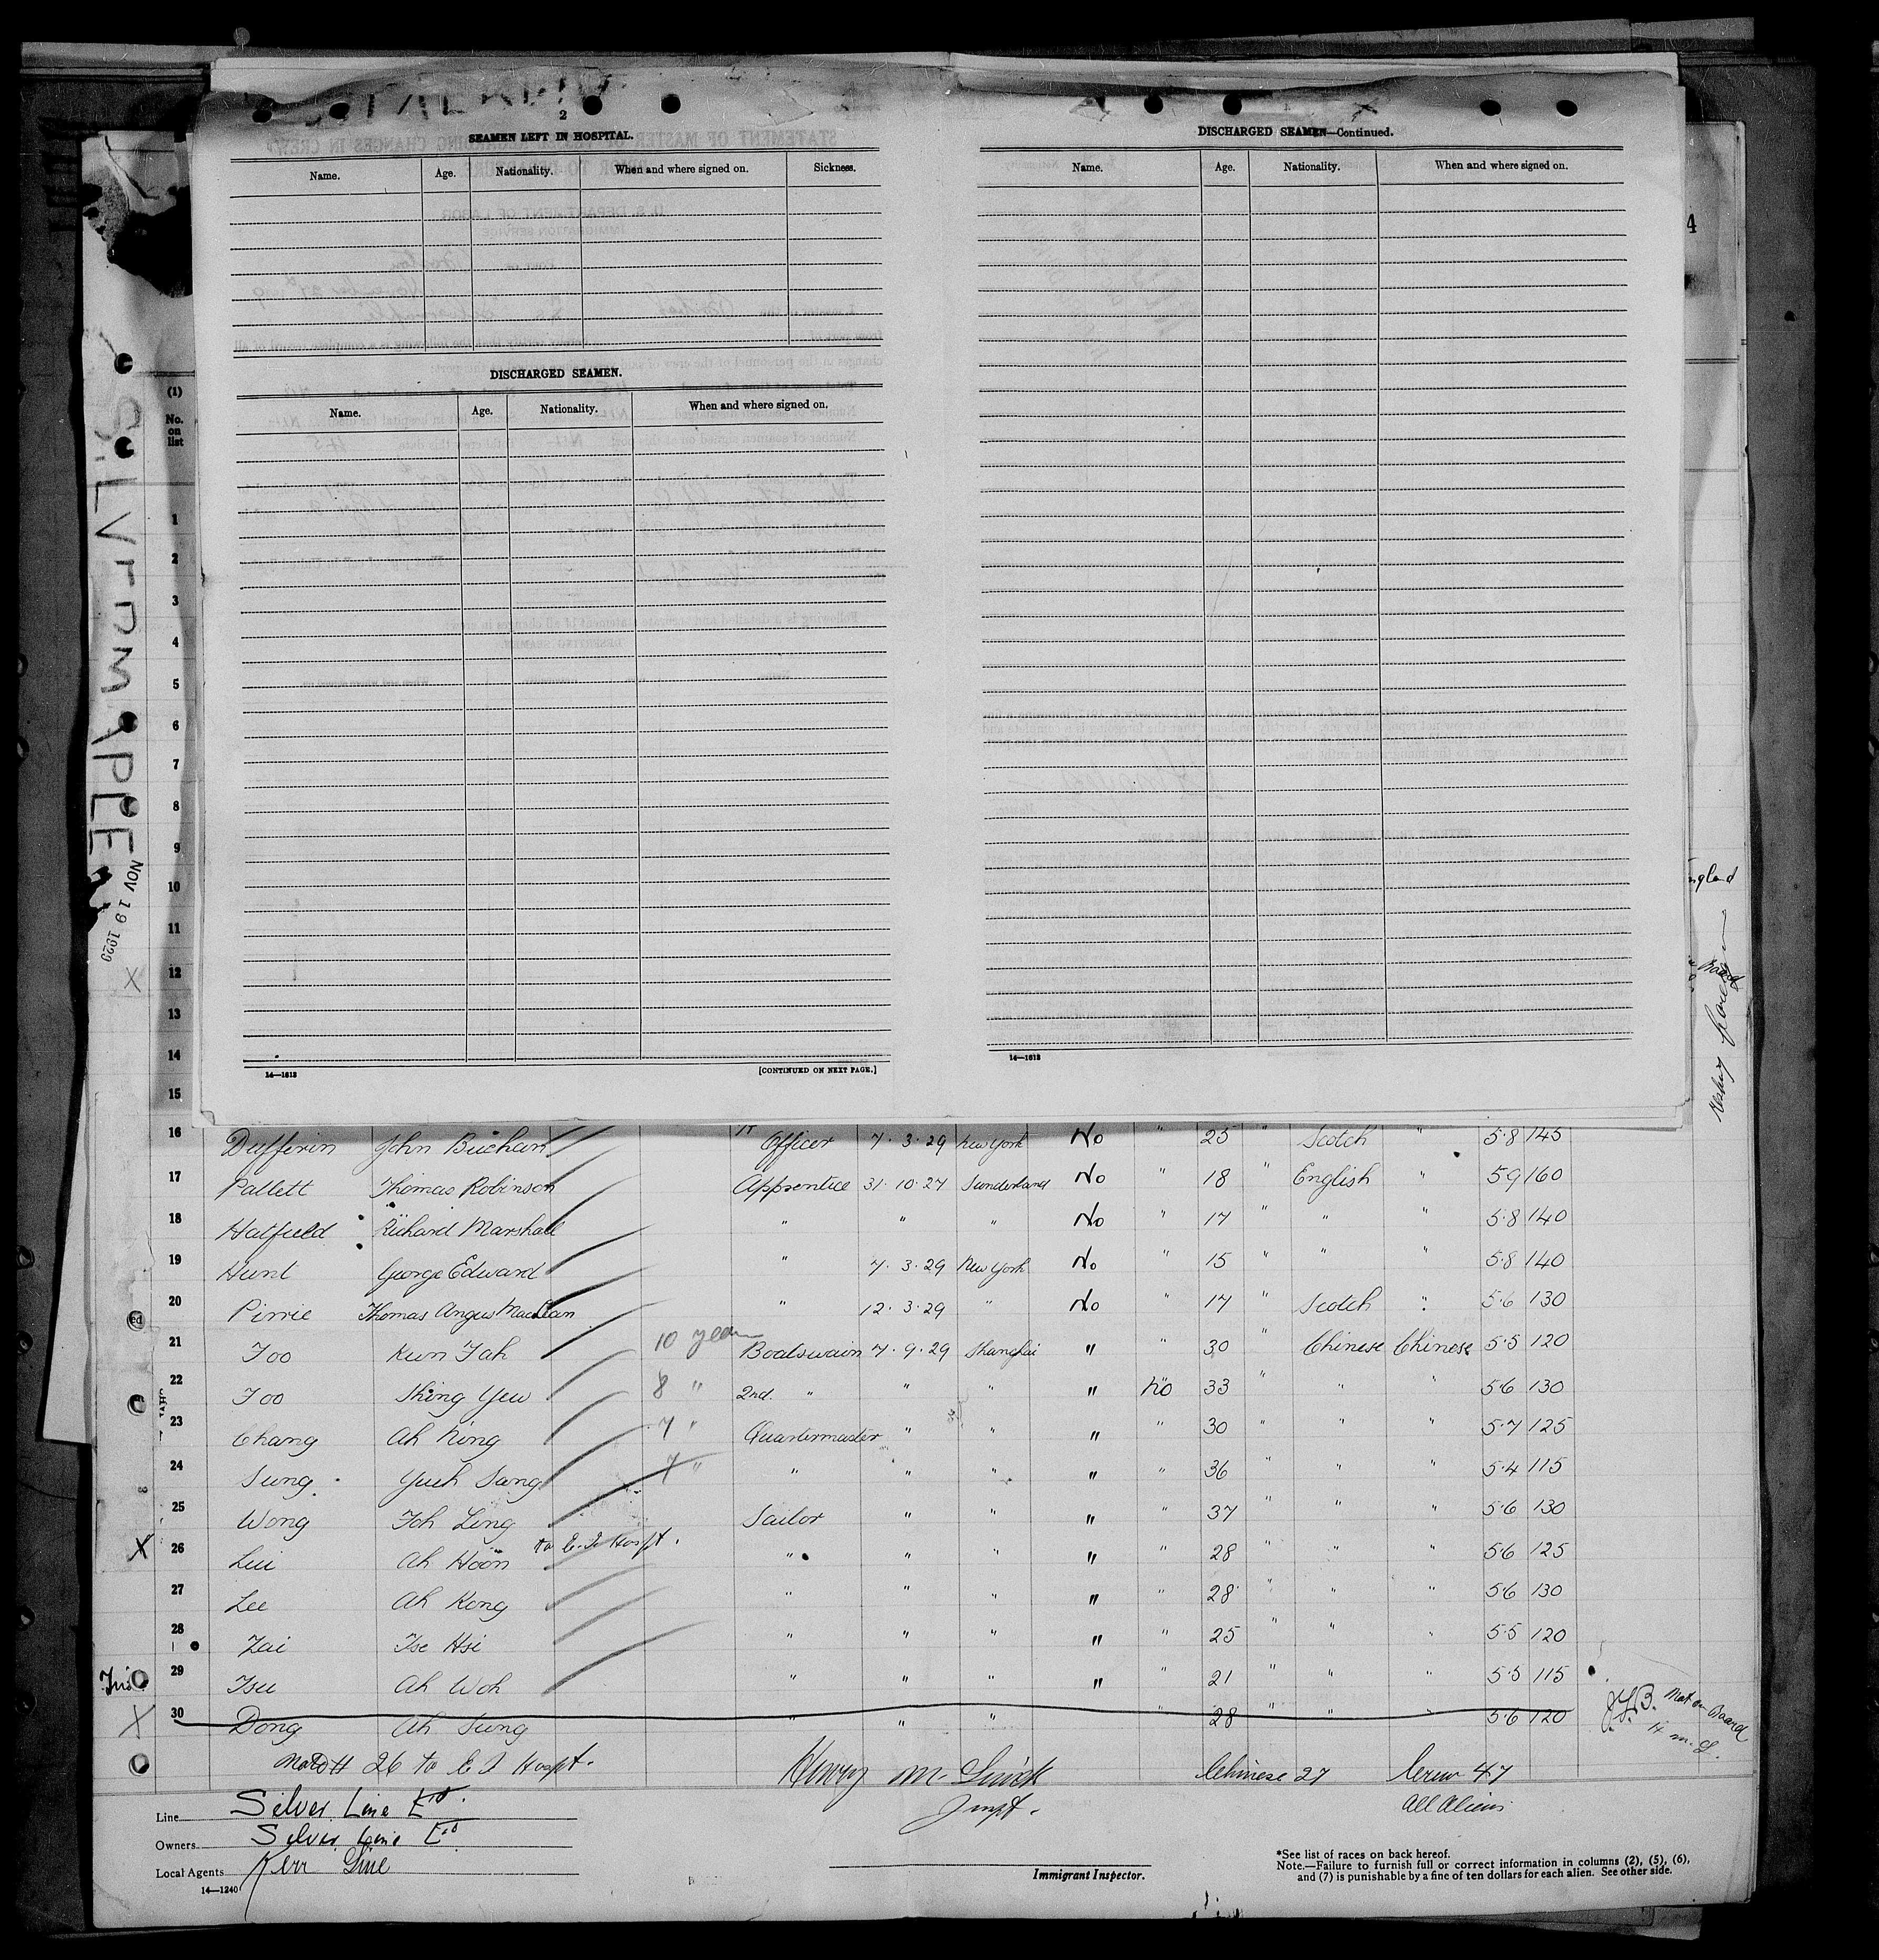 2
SEAMEN LEFT IN HOSPITAL.
Name. Age. Nationality. When and where signed on. Sickness.
DISCHARGED SEAMEN.
Name. Age. Nationality. When and where signed on.
14—1613 [CONTINUED ON NEXT PAGE.]
DISCHARGED SEAMEN—Continued.
Name. Age. Nationality. When and where signed on.
14—1613
4
SILVERMAPLE
NOV 19 1929
(1)
No. on list
1
2
3
4
5
6
7
8
9
10
11
12
13
14
15
16 Dufferin John Buchan Officer 7·3·29 New York No " 25 " Scotch " 5·8 145
17 Pallett Thomas Robinson Apprentice 31·10·27 Sunderland No " 18 " English " 5·9 160
18 Hatfield Richard Marshall " " " No " 17 " " " 5·8 140
19 Hunt George Edward " 7·3·29 New York No " 15 " " " 5·8 140
20 Pirrie Thomas Angus MacLean " 12·3·29 " No " 17 " Scotch " 5·6 130
21 Foo Kun Fah 10 year Boatswain 7·9·29 Shanghai " " 30 " Chinese Chinese 5·5 120
22 Foo Shing Yew 8 " 2nd. " " " " No 33 " " " 5·6 130
23 Chang Ah Ning 7 " Quartermaster " " " " 30 " " " 5·7 125
24 Sung Yueh Sang 7 " " " " " " 36 " " " 5·4 115
25 Wong Foh Ling Sailor " " " " 37 " " " 5·6 130
X 26 Lui Ah Hoon to E. I. Hospt. " " " " " 28 " " " 5·6 125
27 Lee Ah Kong " " " " " 28 " " " 5·6 130
28 Zai Tse Hsi " " " " " 25 " " " 5·5 120
29 Tsu Ah Woh " " " " " 21 " " " 5·5 115
X 30 Dong Ah Sung " " " " 28 " " " 5·6 120 Not on Board
26 to E I Hospt. Henry M. Chinese 27 Crew 47
Inspt. All Aliens
Line Silver Line Ltd.
Owners Silver Line Ltd
Local Agents Kerr Line
14—1240
Immigrant Inspector.
*See list of races on back hereof.
Note.—Failure to furnish full or correct information in columns (2), (5), (6),
and (7) is punishable by a fine of ten dollars for each alien. See other side.